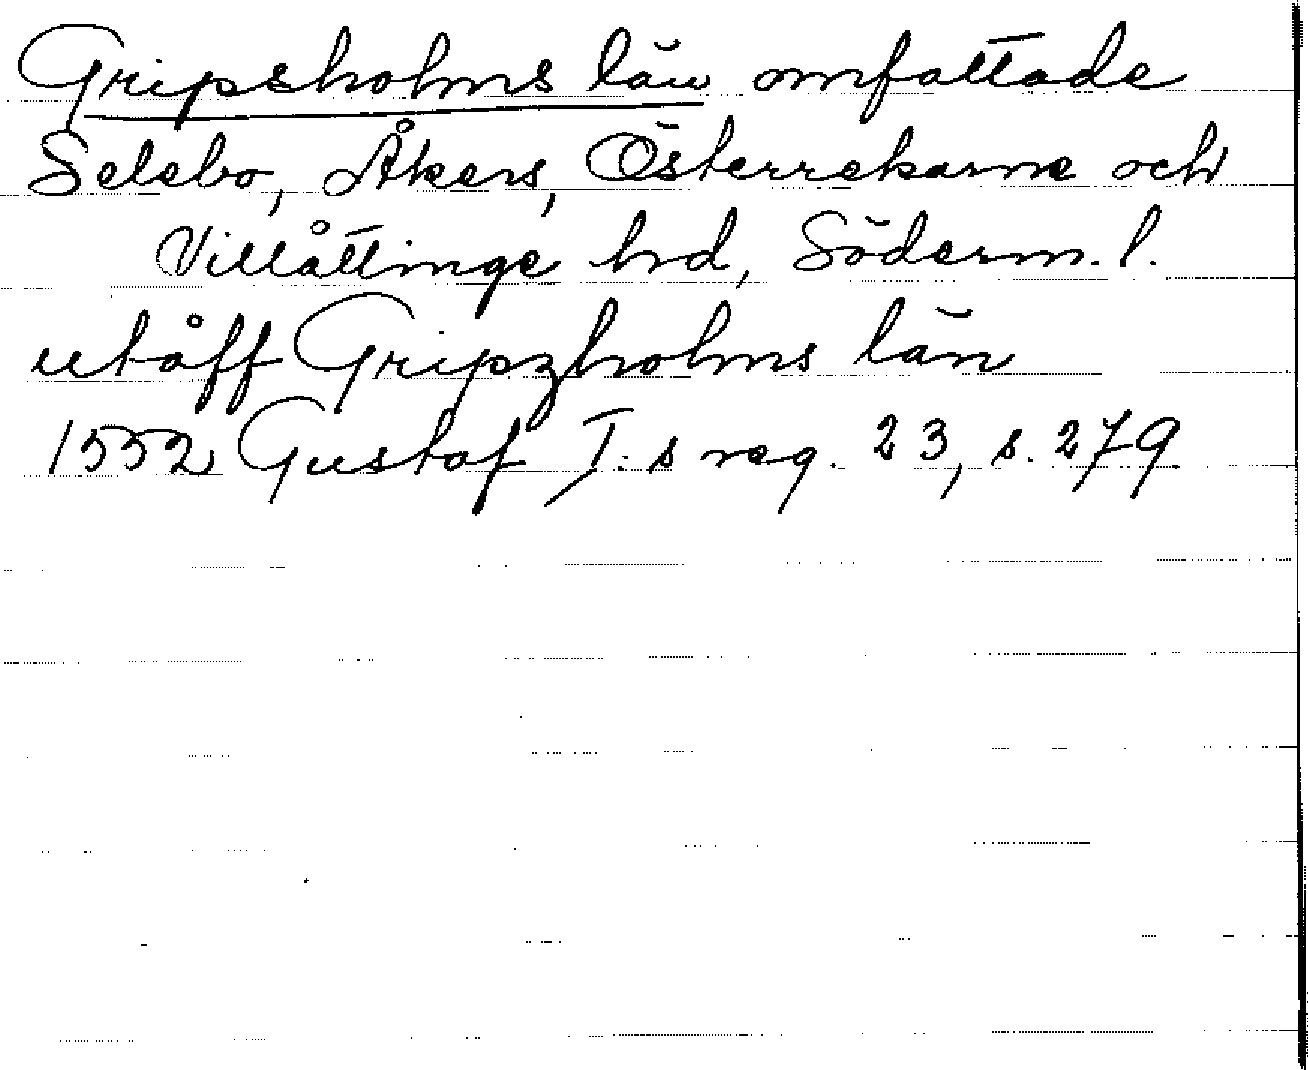 Gripsholms län omfattade
Selebo, Åkers, Österrekarne och
Villåttinge hrd, Söderm. l.
utåff Gripzholms län
1552 Gustaf I:s reg. 23, s. 279